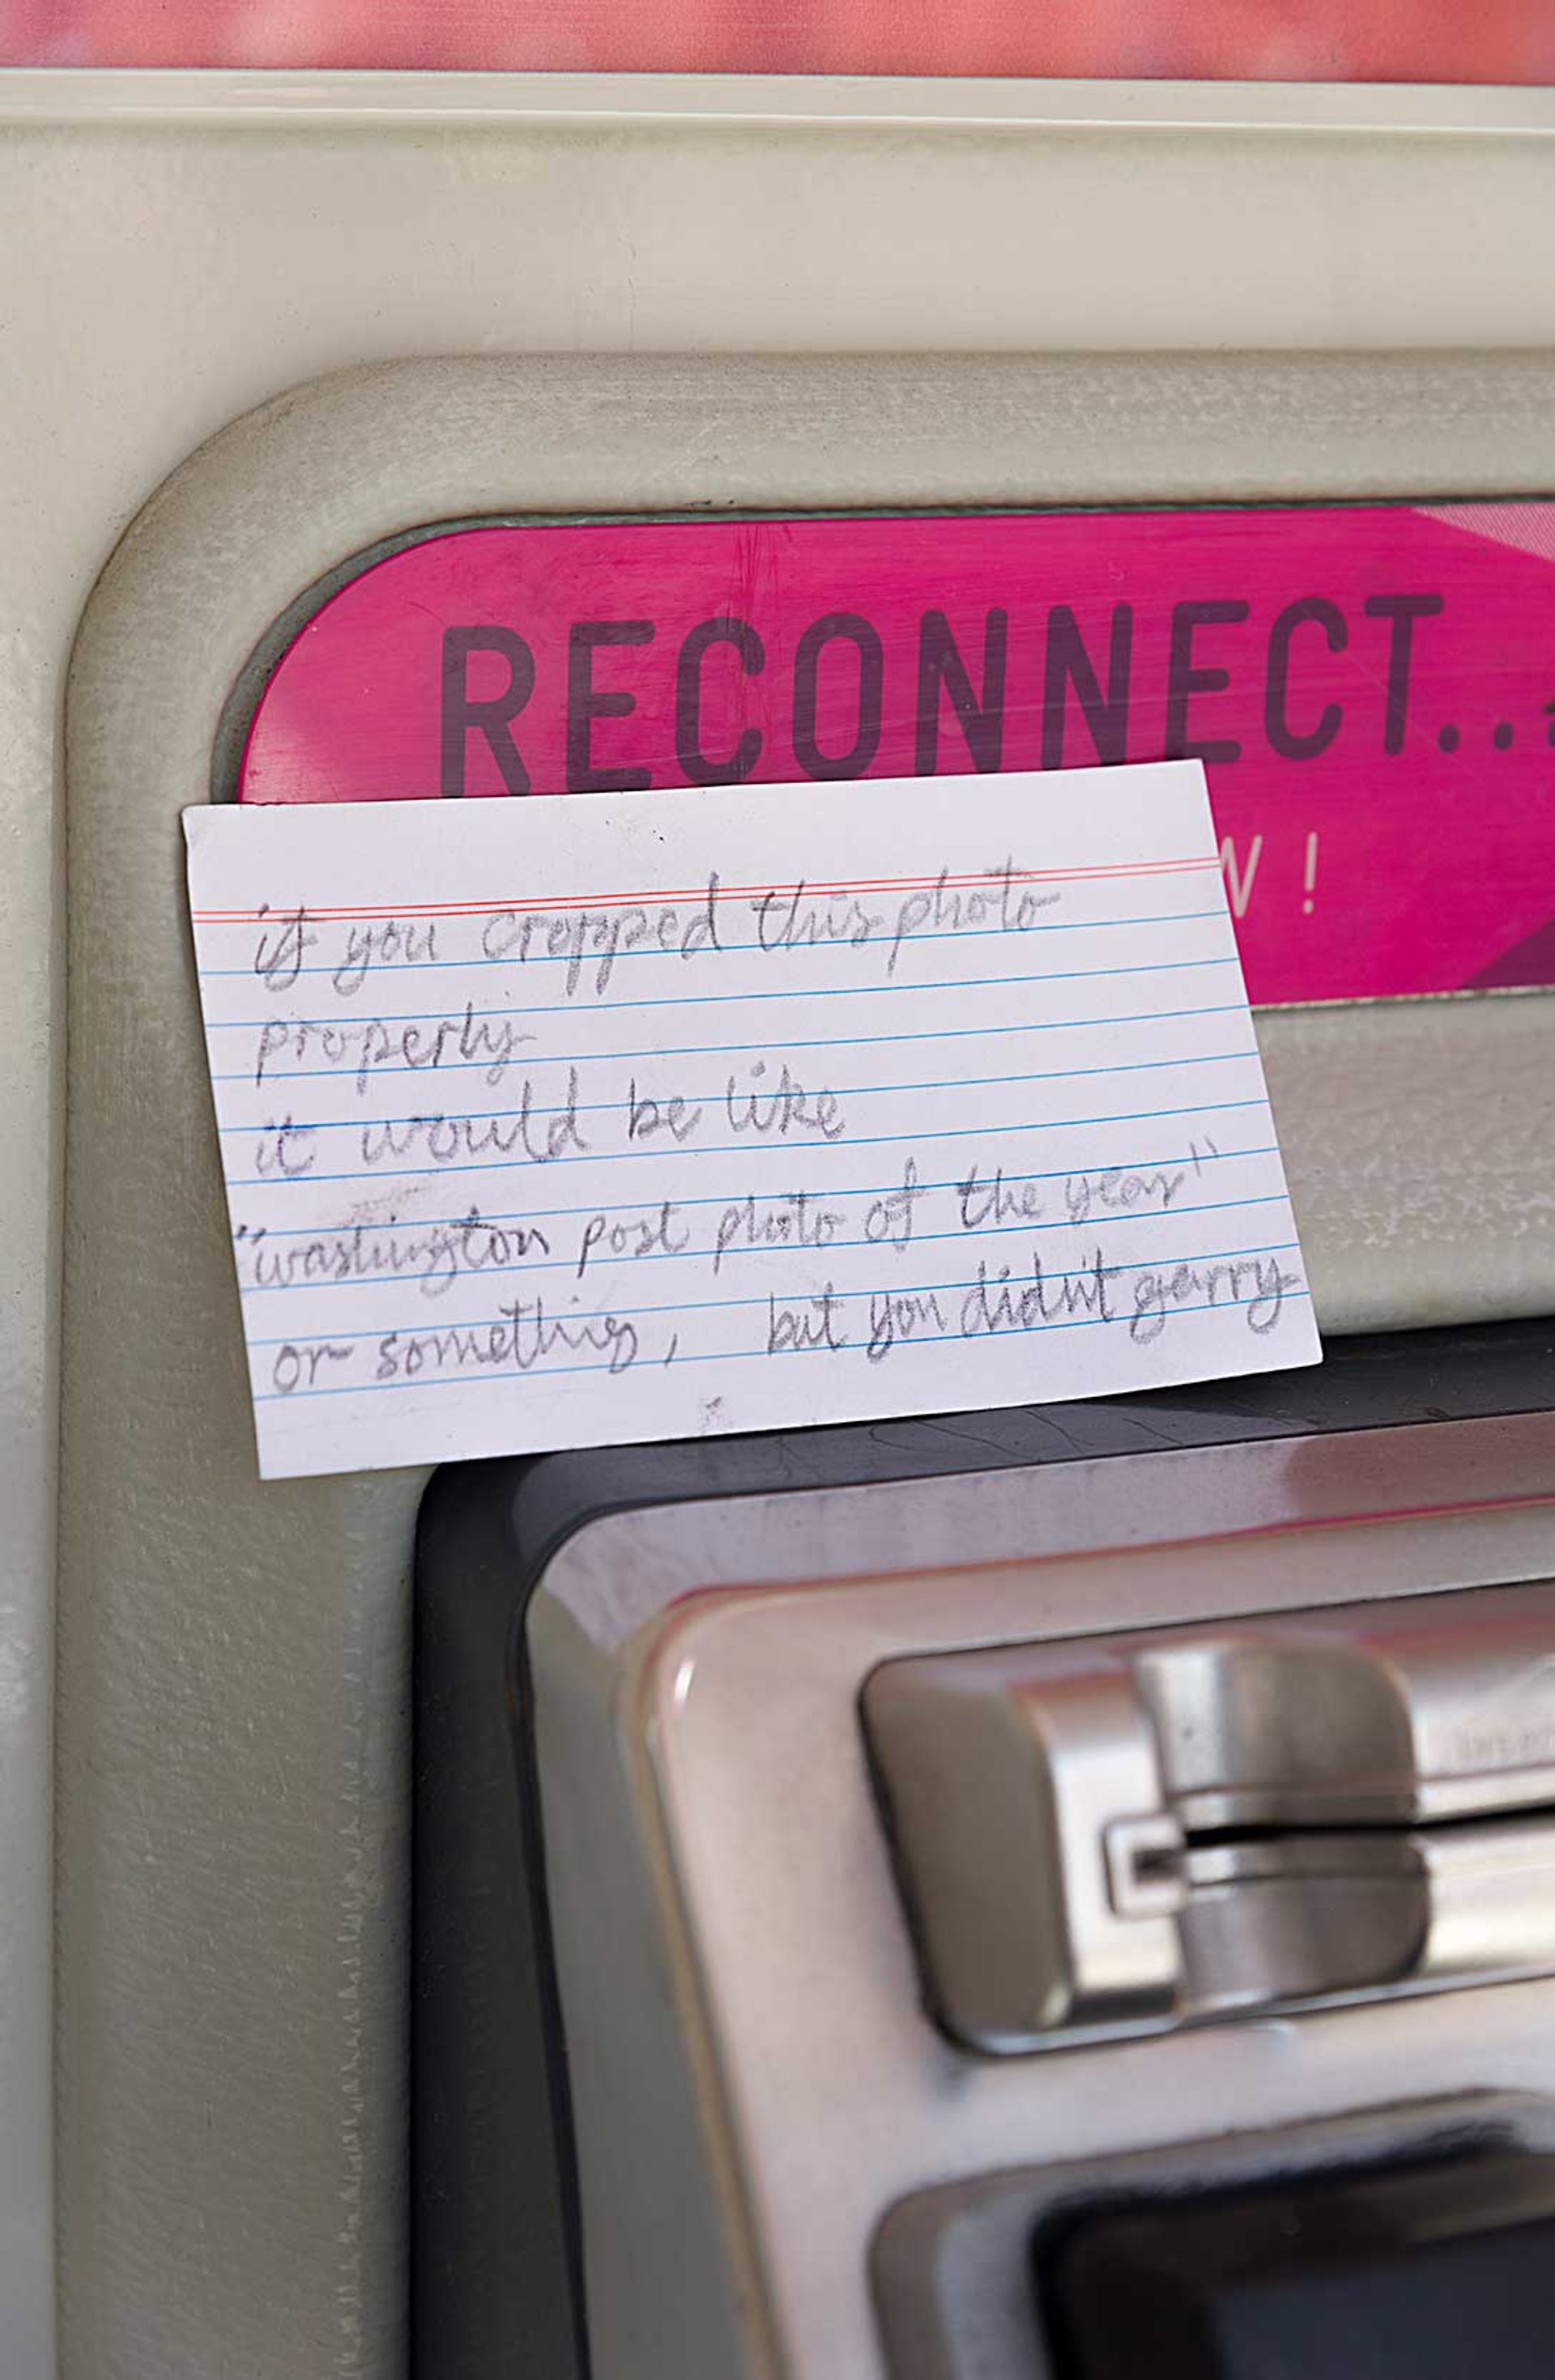 RECONNECT...
N !
if you cropped this photo
properly
it would be like
"washington post photo of the year"
or something, but you didn't garry